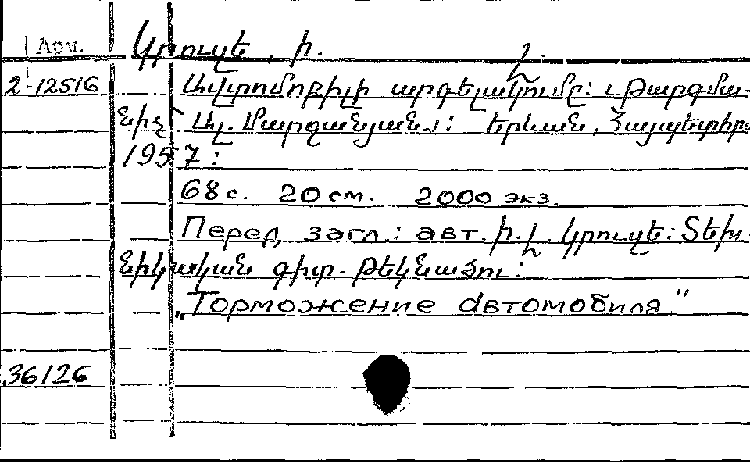 Арм.
Կրուզե, ի. լ.
2-12516 Ավտոմոբիլի արգելակումը: Թարգմա-
նիչ՝ Ալ. Մարգանյան: Երևան, Հայպետհրատ
1957:
68 с. 20 см. 2000 экз.
Перед загл.: авт. ի. լ. կրուզե: Տեխ-
նիկական գիտ. թեկնածու:
„Торможение автомобиля"
36126